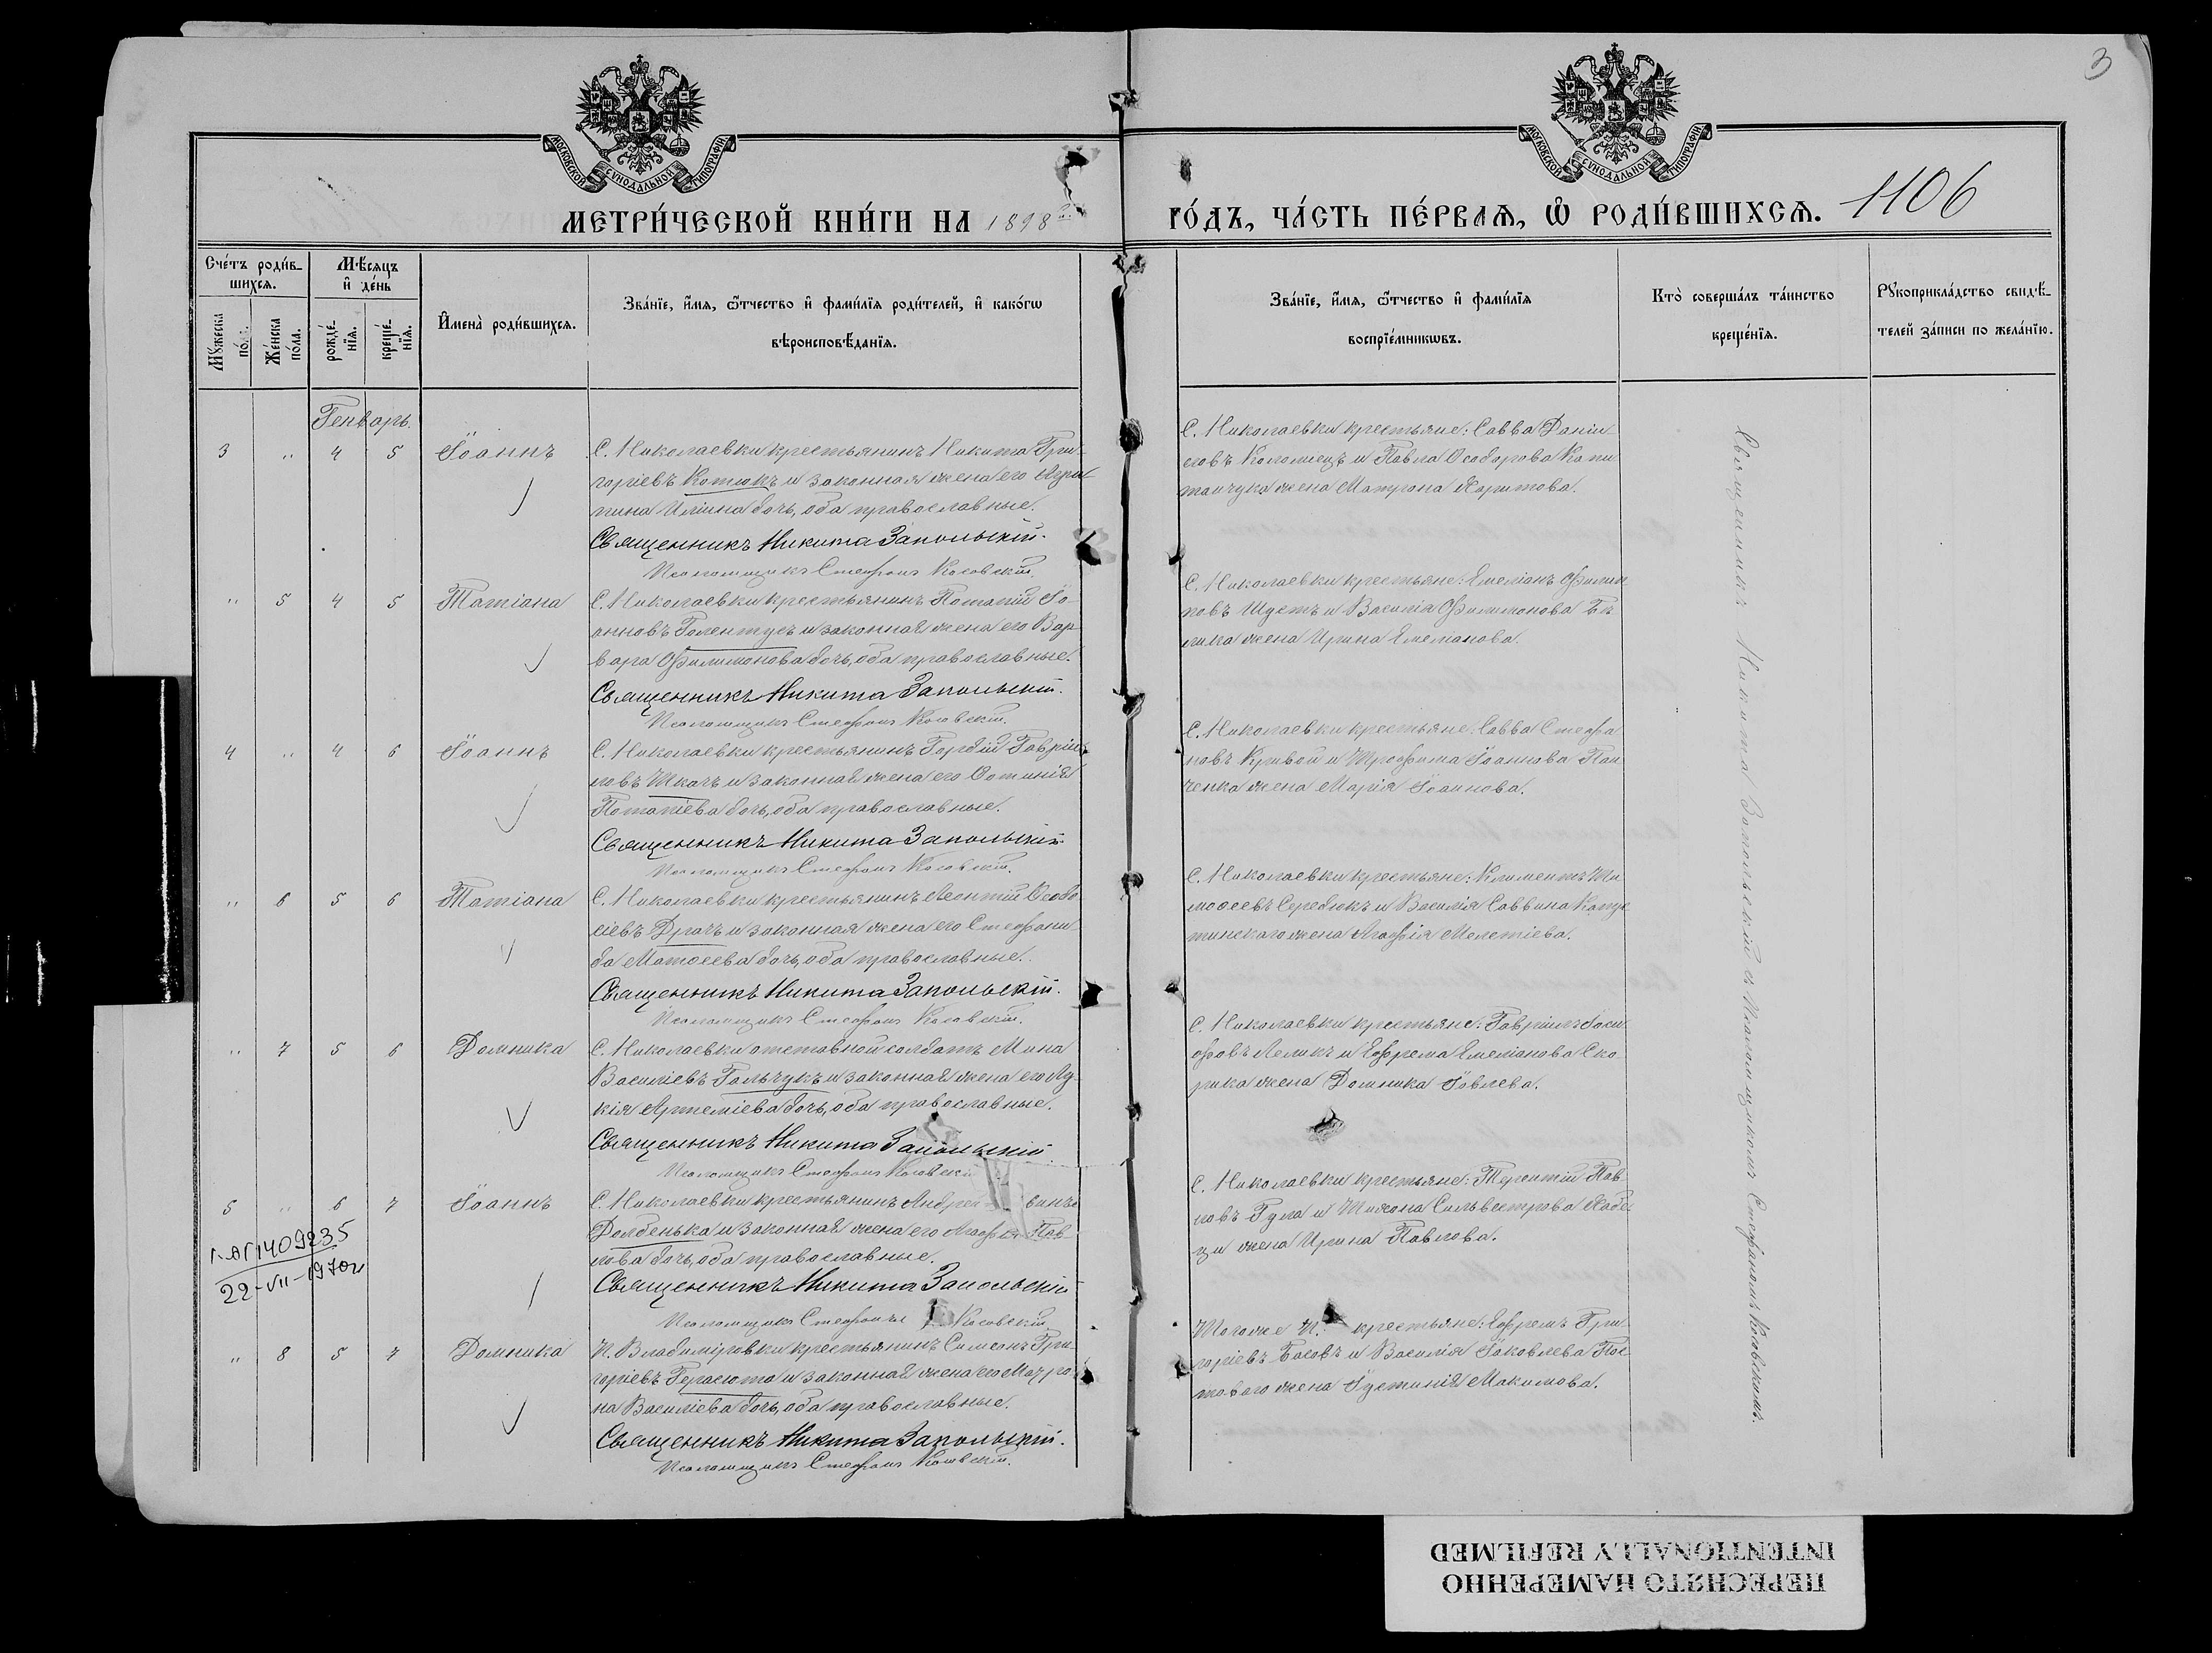 3
МОСКОВСКОЙ СѴНОДАЛЬНОЙ ТИПОГРАФІИ
МОСКОВСКОЙ СѴНОДАЛЬНОЙ ТИПОГРАФІИ
МЕТРИ́ЧЕСКОЙ КНИ́ГИ НА 1898
ГО́ДЪ, ЧА́СТЬ ПЕ́РВАѦ, Ѽ РОДИ́ВШИХСѦ. 1106
Сче́тъ роди́в-
шихсѧ.
Мѣ́сяцъ
и҆ де́нь
Мꙋ́жеска
по́ла.
Же́нска
по́ла.
рожде́-
нїѧ.
креще́-
нїѧ.
И҆мена̀ роди́вшихсѧ.
Зва́нїе, и҆́мѧ, ѻ҆́тчество и҆ фами́лїѧ роди́телей, и҆ како́гѡ
вѣроисповѣ́данїѧ.
Зва́нїе, и҆́мѧ, ѻ҆́тчество и҆ фами́лїѧ
воспрїе́мникѡвъ.
Кто̀ соверша́лъ та́инство
креще́нїѧ.
Рꙋкоприкла́дство свидѣ́-
телей за́писи по жела́нїю.
Генварь.
3 " 4 5 Іоаннъ
С. Николаевки крестьянинъ Никита Гри-
горіевъ Котюкъ и законная жена его Агри-
пина Иліина дочь, оба православные.
Священникъ Никита Запольскій.
Псаломщикъ Стефанъ Косовскій.
С. Николаевки крестьяне: Савва Даніи-
ловъ Коломіецъ и Павла Ѳеодорова Капи-
танчука жена Матрона Харитова.
" 5 4 5 Татіана
С. Николаевки крестьянинъ Потапій Іо-
анновъ Голентусъ и законная жена его Вар-
вара Филимонова дочь, оба православные.
Священникъ Никита Запольскій.
Псаломщикъ Стефанъ Косовскій.
С. Николаевки крестьяне: Емеліанъ Филип-
повъ Шустъ и Василія Филимонова Бѣ-
лика жена Ирина Емеліанова.
4 " 4 6 Іоаннъ
С. Николаевки крестьянинъ Гордій Гавріи-
ловъ Ткачъ и законная жена его Фотинія
Потапіева дочь, оба православные.
Священникъ Никита Запольскій
Псаломщикъ Стефанъ Косовскій.
С. Николаевки крестьяне: Савва Стефа-
новъ Кривой и Трофима Іоаннова Пан-
ченка жена Марія Іоаннова.
" 6 5 6 Татіана
С. Николаевки крестьянинъ Леонтій Ѳеодо-
сіевъ Драчъ и законная жена его Стефани-
да Матѳеева дочь, оба православные.
Священникъ Никита Запольскій.
Псаломщикъ Стефанъ Косовскій.
С. Николаевки крестьяне: Климентъ Ти-
моѳеевъ Середюкъ и Василія Саввина Капус-
тинскаго жена Агафія Мелетіева.
" 7 5 6 Домника
С. Николаевки отставной солдатъ Мина
Василіевъ Гальчукъ и законная жена его Лу-
кія Артеміева дочь, оба православные.
Священникъ Никита Запольскій.
Псаломщикъ Стефанъ Косовскій
С. Николаевки крестьяне: Гавріилъ Іоси-
фовъ Леликъ и Ефрема Емеліанова Ско-
рика жена Домника Іовлева.
5 " 6 7 Іоаннъ
С. Николаевки крестьянинъ Андрей винъ
Долбенька и законная жена его Агафія Пав-
лова дочь, оба православные.
Священникъ Никита Запольскій
Псаломщикъ Стефанъ Косовскій.
С. Николаевки крестьяне: Терентій Пав-
ловъ Гула и Тихона Сильвестрова
жена Ирина Павлова.
1409235
22-VII-1970г
" 8 5 7 Домника
Н. Владиміровки крестьянинъ Симеонъ Гри-
горіевъ Герасюта и законная жена его Матро-
на Василіева дочь, оба православные.
Священникъ Никита Запольскій.
Псаломщикъ Стефанъ Косовскій.
Тогоже Н. крестьяне: Ефремъ Гри-
горіевъ Басовъ и Василія Іаковлева Пос-
товаго жена Іустинія Макимова.
Священникъ Никита Запольскій съ Псаломщикомъ Стефаномъ Косовскимъ.
ПЕРЕСНЯТО НАМЕРЕННО
INTENTIONALLY REFILMED